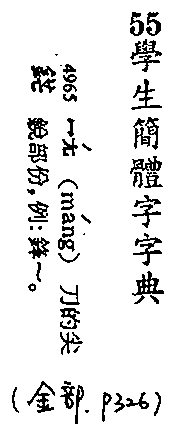 55學生簡體字字典
4965 (máng) 刀的尖
銳部份,例:鋒~。
(金部. P326)